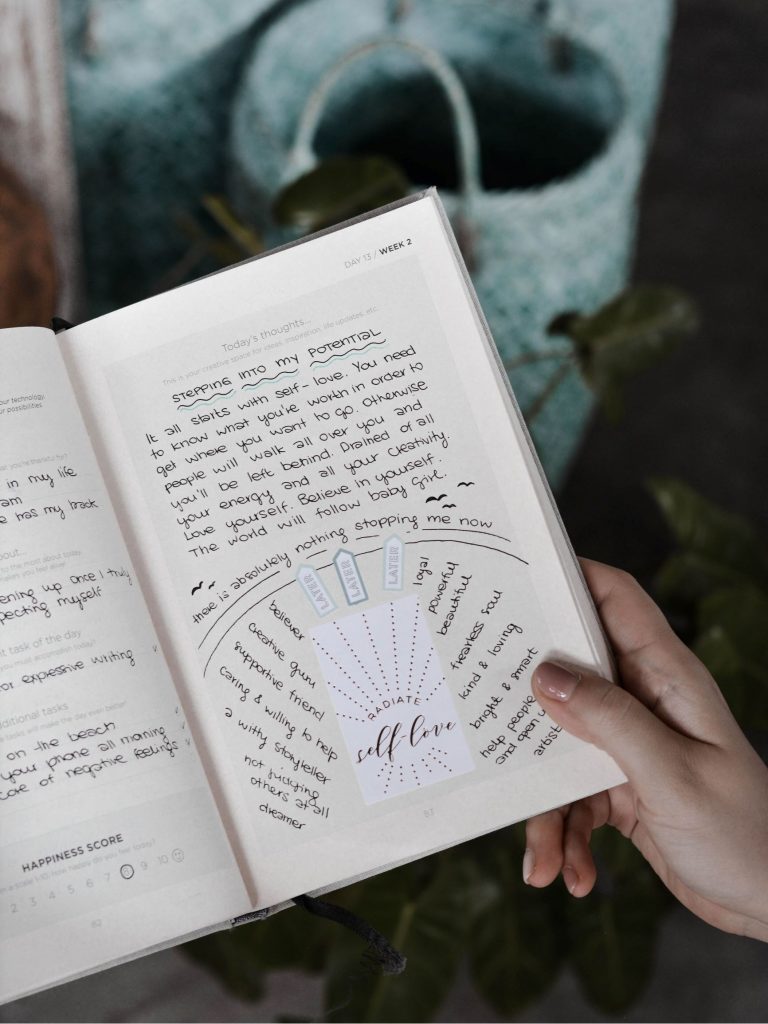 our technology.
our possibilities
what you're thankful for?
in my life
am
e has my back
about...
to the most about today
makes you feel alive!
ening up once I truly
pecting myself
nt task of the day
you must accomplish today?
or expressive writing
ditional tasks
tasks will make the day even better!
on the beach
your phone all morning
care of negative feelings
HAPPINESS SCORE
on a scale 1-10, how happy do you feel today?
2 3 4 5 6 7 8 9 10
82
DAY 13 / WEEK 2
Today's thoughts...
This is your creative space for ideas, inspiration, life updates, etc.
STEPPING INTO MY POTENTIAL
It all starts with self-love. You need
to know what you're worth in order to
get where you want to go. Otherwise
people will walk all over you and
you'll be left behind. Drained of all
your energy and all your creativity.
Love yourself. Believe in yourself.
The world will follow baby girl.
there is absolutely nothing stopping me now
LATER
LATER
LATER
believer
creative guru
supportive friend
caring & willing to help
a witty storyteller
not judging
others at all
dreamer
RADIATE
self-love
loyal
powerful
beautiful
fearless soul
kind & loving
bright & smart
help people
and open u
artist
83